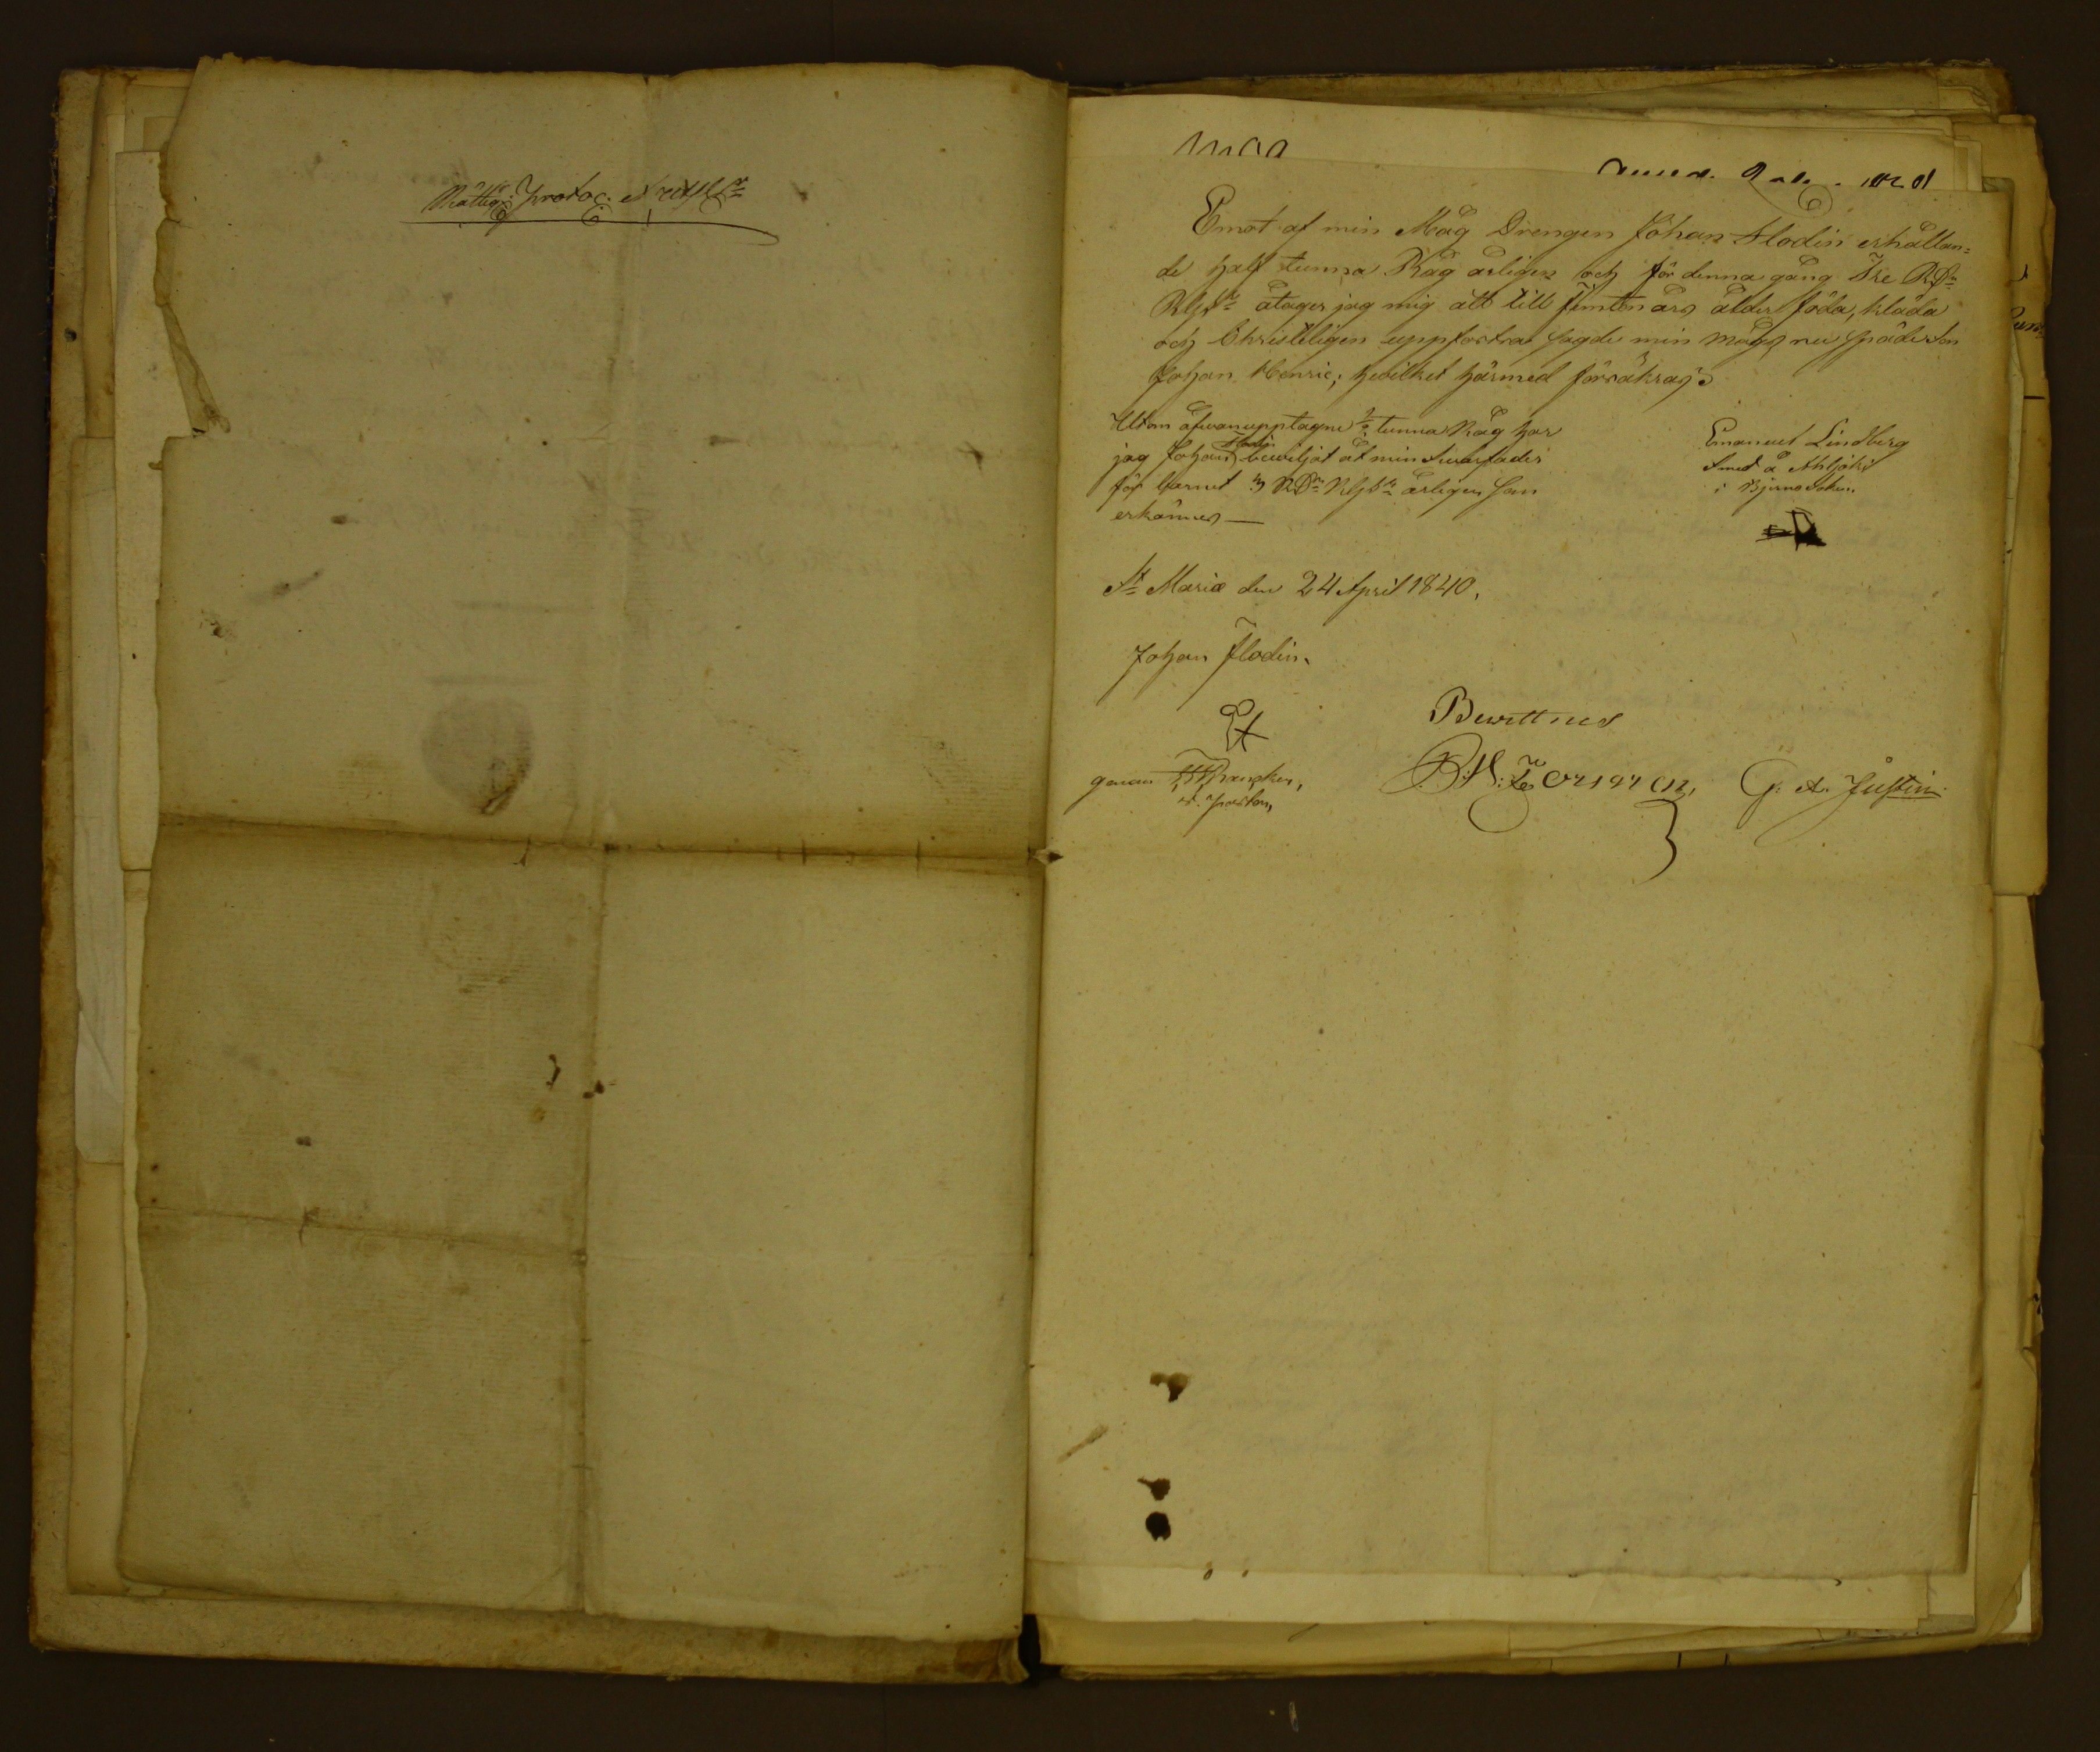 Emot af min Måg Drengen Johan Flodin erhållan=
de half tunna Råg årligen och för denna gång Tre RD
Rgs åtager jag mig att till femton års ålder föda, kläda
och Christeligen uppfostra sagde min mågs nu späde Son
Johan Henric; hvilket härmed försäkras
Utom åfwanupptagne ½ tunna Råg har
jag Johan Flodin beviljat åt min Swärfader
för barnet 3 RD årligen som
erkännes —
Emanuel Lindberg
Smed å
i Bjerno Soken
St Mariæ den 24 April 1840.
Johan Flodin.
Bewittnes
genom
G. A. Justin